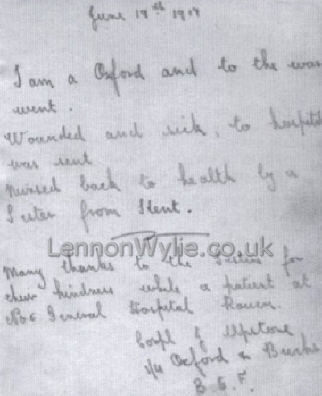 June 17th 191
I am a Oxford and to the war
went.
Wounded and sick, to hospital
was sent
Nursed back to health by a
Sister from Kent.
LennonWylie.co.uk
Many thanks to the Sisters for
their kindness while a patient at
No 6 General Hospital Rouen.
Corpl J Upstone
Oxford & Bucks
B.E.F.